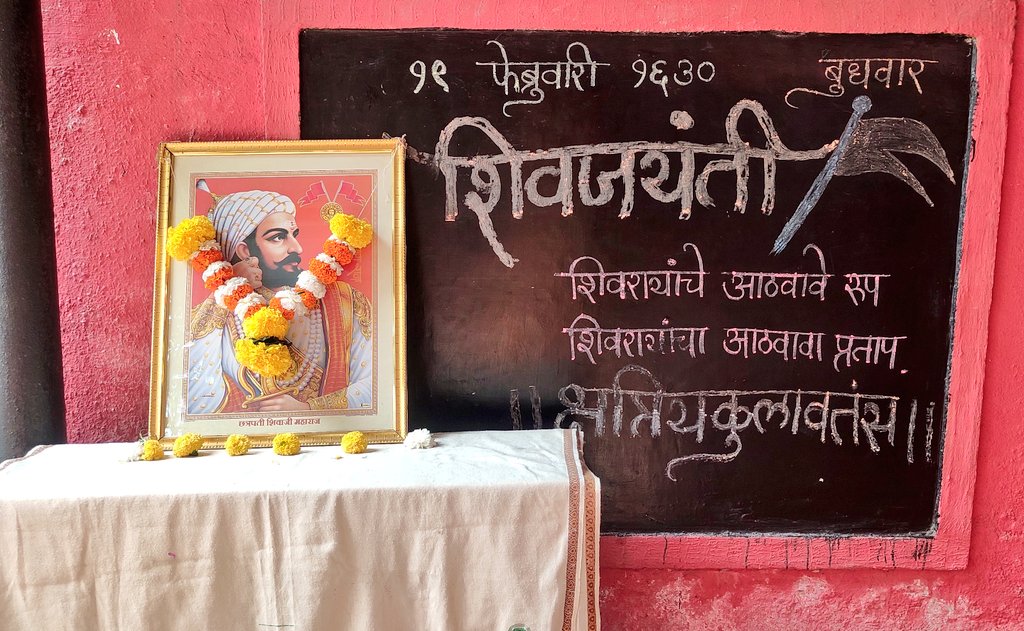 १९ फेब्रुवारी १६३० बुधवार
शिवजयंती
शिवरायांचे आठवावे रूप
शिवरायांचा आठवावा प्रताप.
||क्षत्रियकुलावतंस||
छत्रपती शिवाजी महाराज